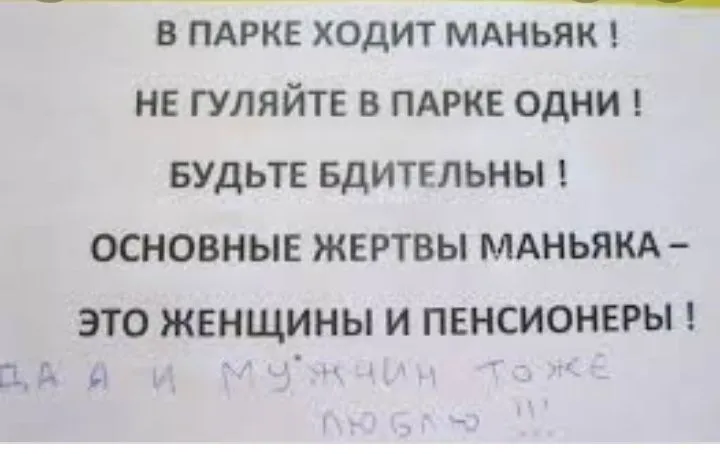 В ПАРКЕ ХОДИТ МАНЬЯК !
НЕ ГУЛЯЙТЕ В ПАРКЕ ОДНИ !
БУДЬТЕ БДИТЕЛЬНЫ !
ОСНОВНЫЕ ЖЕРТВЫ МАНЬЯКА –
ЭТО ЖЕНЩИНЫ И ПЕНСИОНЕРЫ !
ДА Я И МУЖЧИН ТОЖЕ
ЛЮБЛЮ !!!